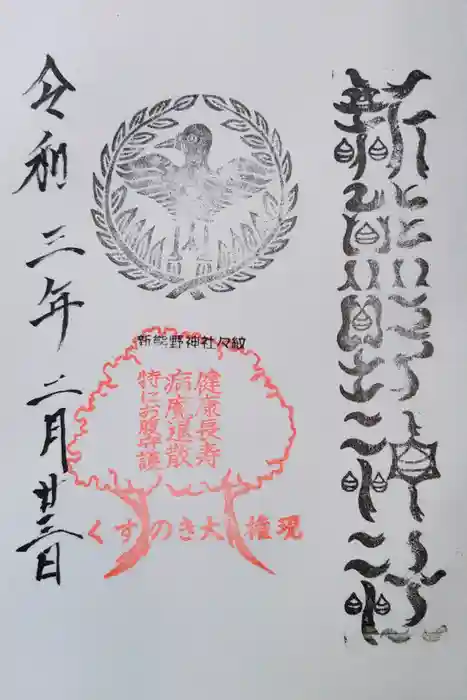 新熊野神社
新熊野神社々紋
健康長寿
病魔退散
特にお腹守護
くすのき大権現
令和三年二月廿三日